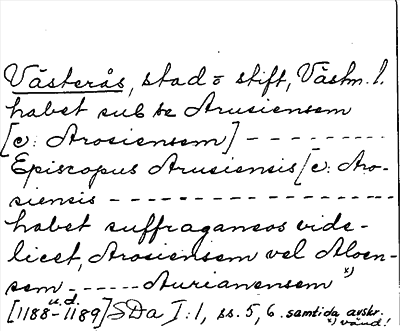 Västerås, stad o stift, Västm. l.
habet sub se Arusiensem
[c: Arosiensem] - - - - - - - - -
Episcopus Arusiensis [c: Aro-
siensis - - - - - - - - - - - - - - - - -
habet suffraganeos vide-
licet, Arosiensem vel Aloen-
sem - - - - - - Aurianensem x)
[1188-1189] u.d. SDa I:1, ss. 5, 6. samtida avskr.
x) vänd!